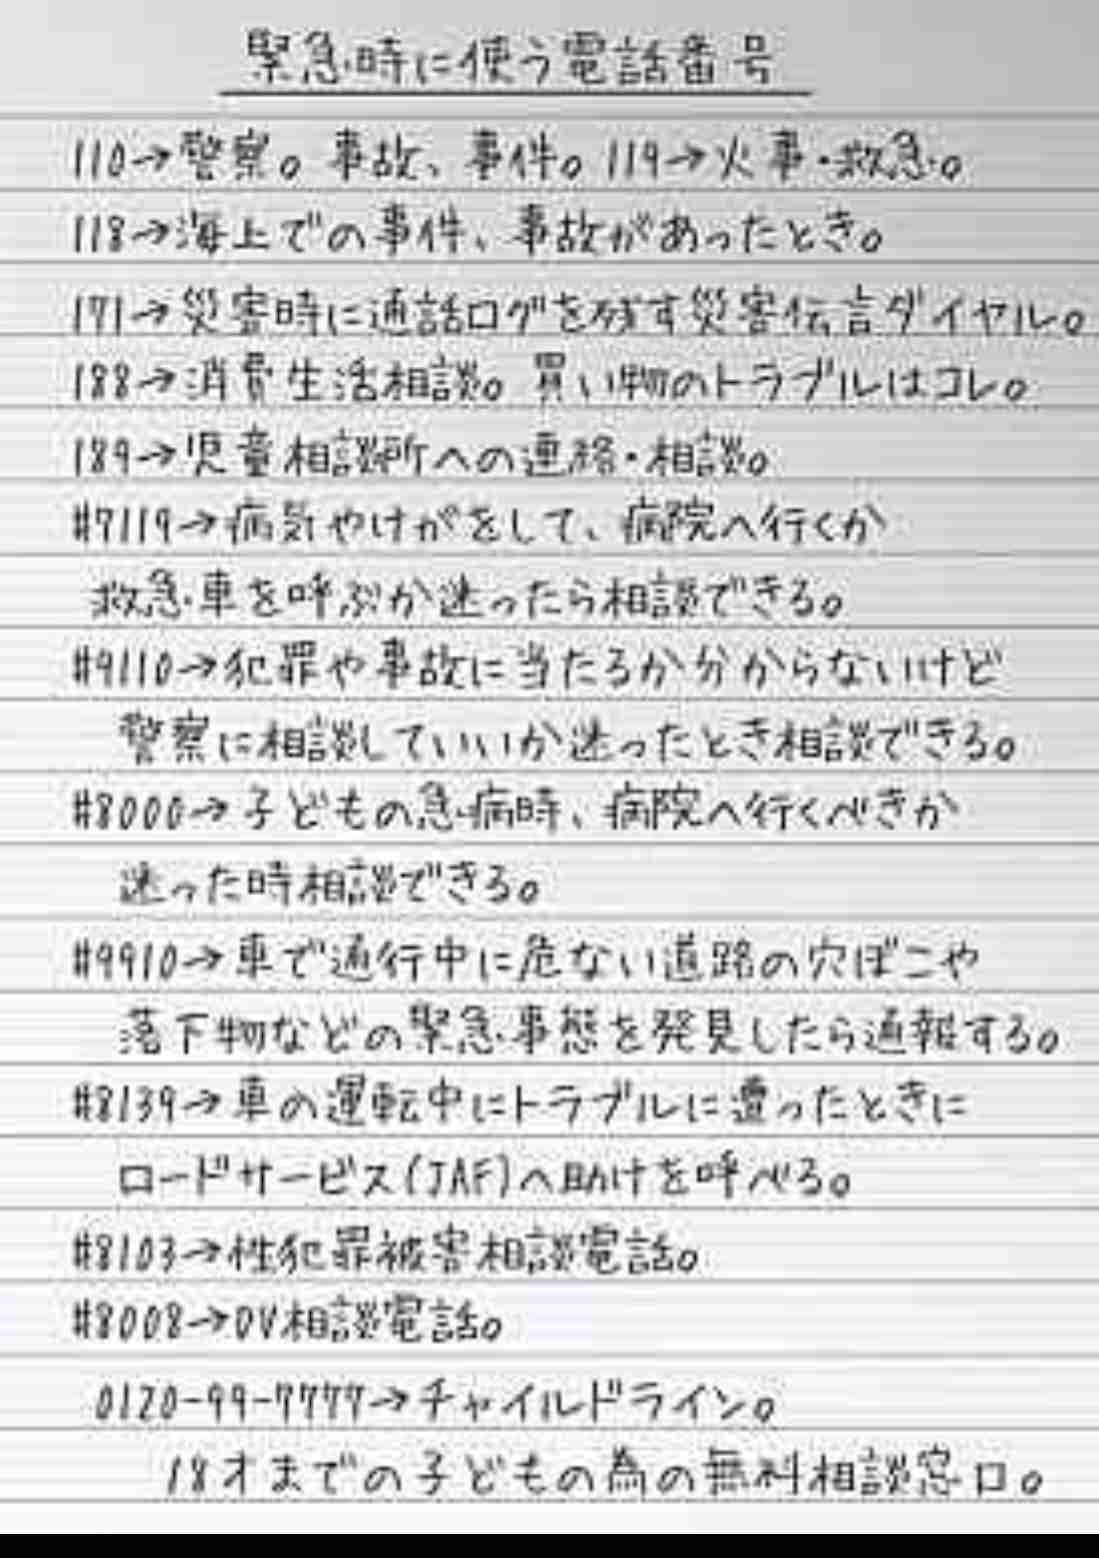 緊急時に使う電話番号
110→警察。事故、事件。119→火事・救急。
118→海上での事件、事故があったとき。
171→災害時に通話ログを残す災害伝言ダイヤル。
188→消費生活相談。買い物のトラブルはコレ。
189→児童相談所への連絡・相談。
#7119→病気やけがをして、病院へ行くか
救急車を呼ぶか迷ったら相談できる。
#9110→犯罪や事故に当たるか分からないけど
警察に相談していいか迷ったとき相談できる。
#8000→子どもの急病時、病院へ行くべきか
迷った時相談できる。
#9910→車で通行中に危ない道路の穴ぼこや
落下物などの緊急事態を発見したら通報する。
#8139→車の運転中にトラブルに遭ったときに
ロードサービス(JAF)へ助けを呼べる。
#8103→性犯罪被害相談電話。
#8008→DV相談電話。
0120-99-7777→チャイルドライン。
18才までの子どもの為の無料相談窓口。